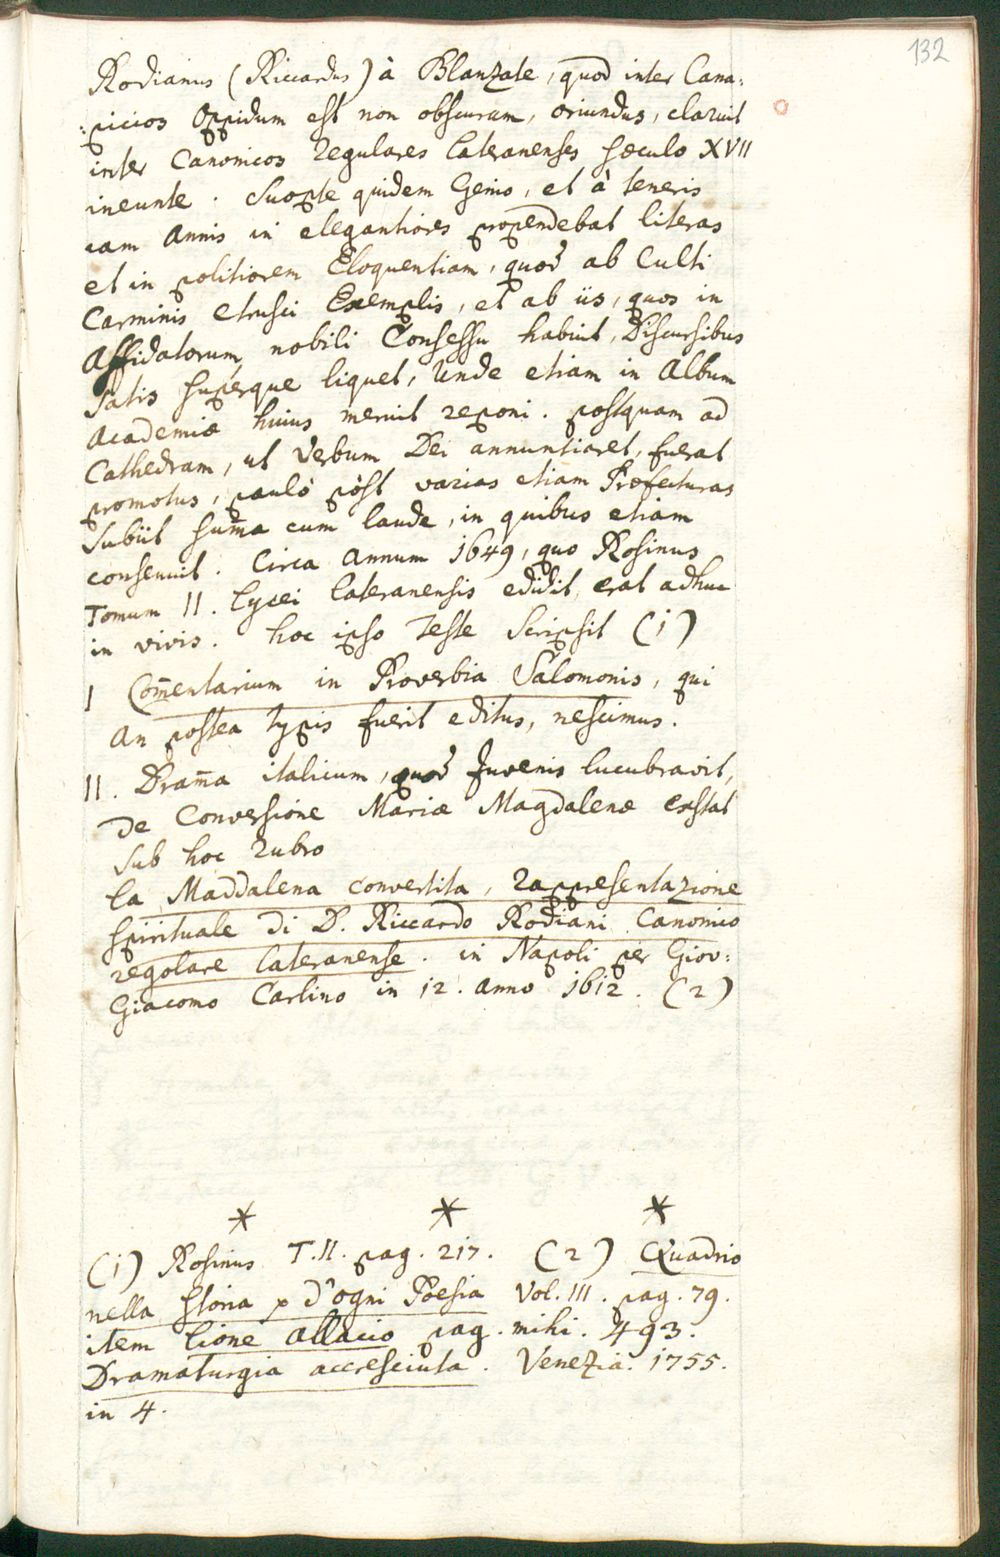 132
Rodianus (Riccardus) à Blanzate, quod inter Cana:
:picios Oppidum est non obscuram, oriundus, claruit
inter Canonicos Regulares Lateranenses sæculo XVII
ineunte. Suopte quidem Genio, et à teneris
iam Annis in elegantiores propendebat literas
et in politiorem Eloquentiam, quod ab Culti
Carminis etrusci Exemplis, et ab iis, quos in
Affidatorum nobili Consessu habuit, Discursibus
satis superque liquet, Unde etiam in Album
Academiæ huius meruit reponi. postquam ad
Cathedram, ut Verbum Dei annuntiaret, fuerat
promotus, paulò pòst varias etiam Præfecturas
subiit sum̄a cum laude, in quibus etiam
consenuit. Circa Annum 1649, quo Rosinus
Tomum II. Lycei Lateranensis edidit, erat adhuc
in vivis. hoc ipso Teste scripsit (1)
I Com̄entarium in Proverbia Salomonis, qui
an postea typis fuerit editus, nescimus.
II. Dram̄a italicum, quod Juvenis lucubravit,
De Conversione Mariæ Magdalenæ exstat
sub hoc rubro
La Maddalena convertita, rappresentazione
spirituale di D. Riccardo Rodiani Canonico
regolare Lateranense. in Napoli per Giov:
Giacomo Carlino in 12. anno 1612. (2)
* * *
(1) Rosinus T.II. pag. 217. (2) Quadrio
nella storia p d'ogni Poesia Vol. III. pag. 79.
item Lione Allacio pag. mihi. 493.
Dramaturgia accresciuta. Venezia. 1755.
in 4.